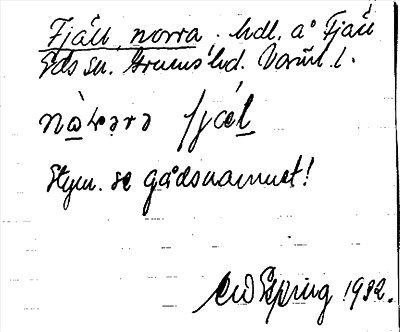 Fjäll, norra. hdl. å Fjäll
Eds sn. Grums hd. Värml. l.
nò̱rərə fjæ̀l
Etym. se gårdsnamnet!
Espring 1932.